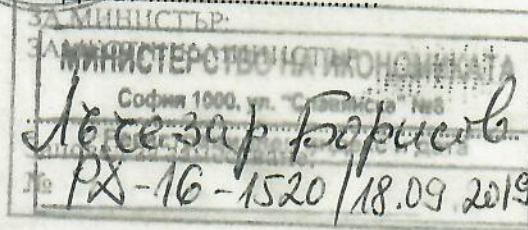 ЗА МИНИСТЪР:
МИНИСТЕРСТВО НА ИКОНОМИКАТА
София 1000, ул. "Славянска" №8
Лъчезар Борисов
№ РД-16-1520/18.09.2019